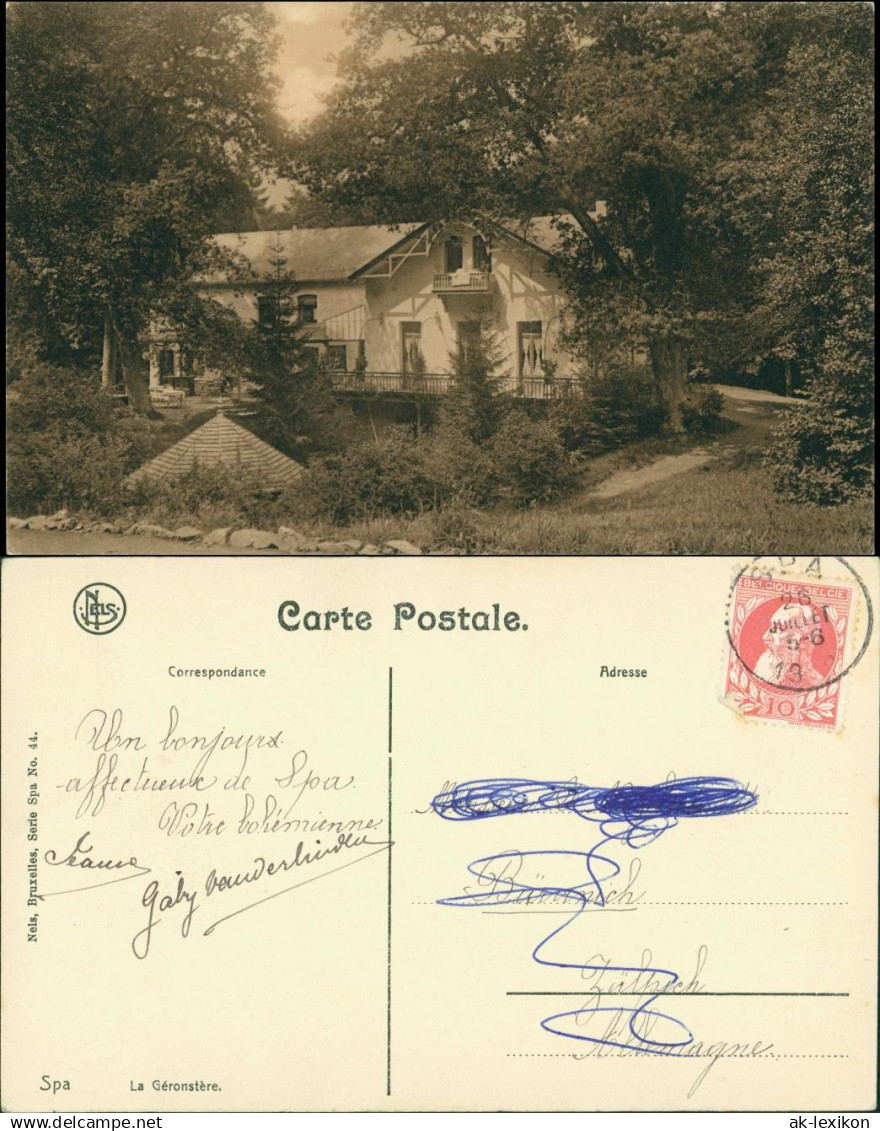 NELS
Carte Postale.
SPA
26
JUILLET
5-6
13
BELGIQUE·BELGIE
10
Correspondance
Adresse
Un bonjours
affectueux de Spa.
Votre bohémienne
Jeanne
Gaby Vanderlinden
Zülpich
Allemagne.
Nels, Bruxelles, Serie Spa No. 44.
Spa La Géronstère.
ak-lexikon